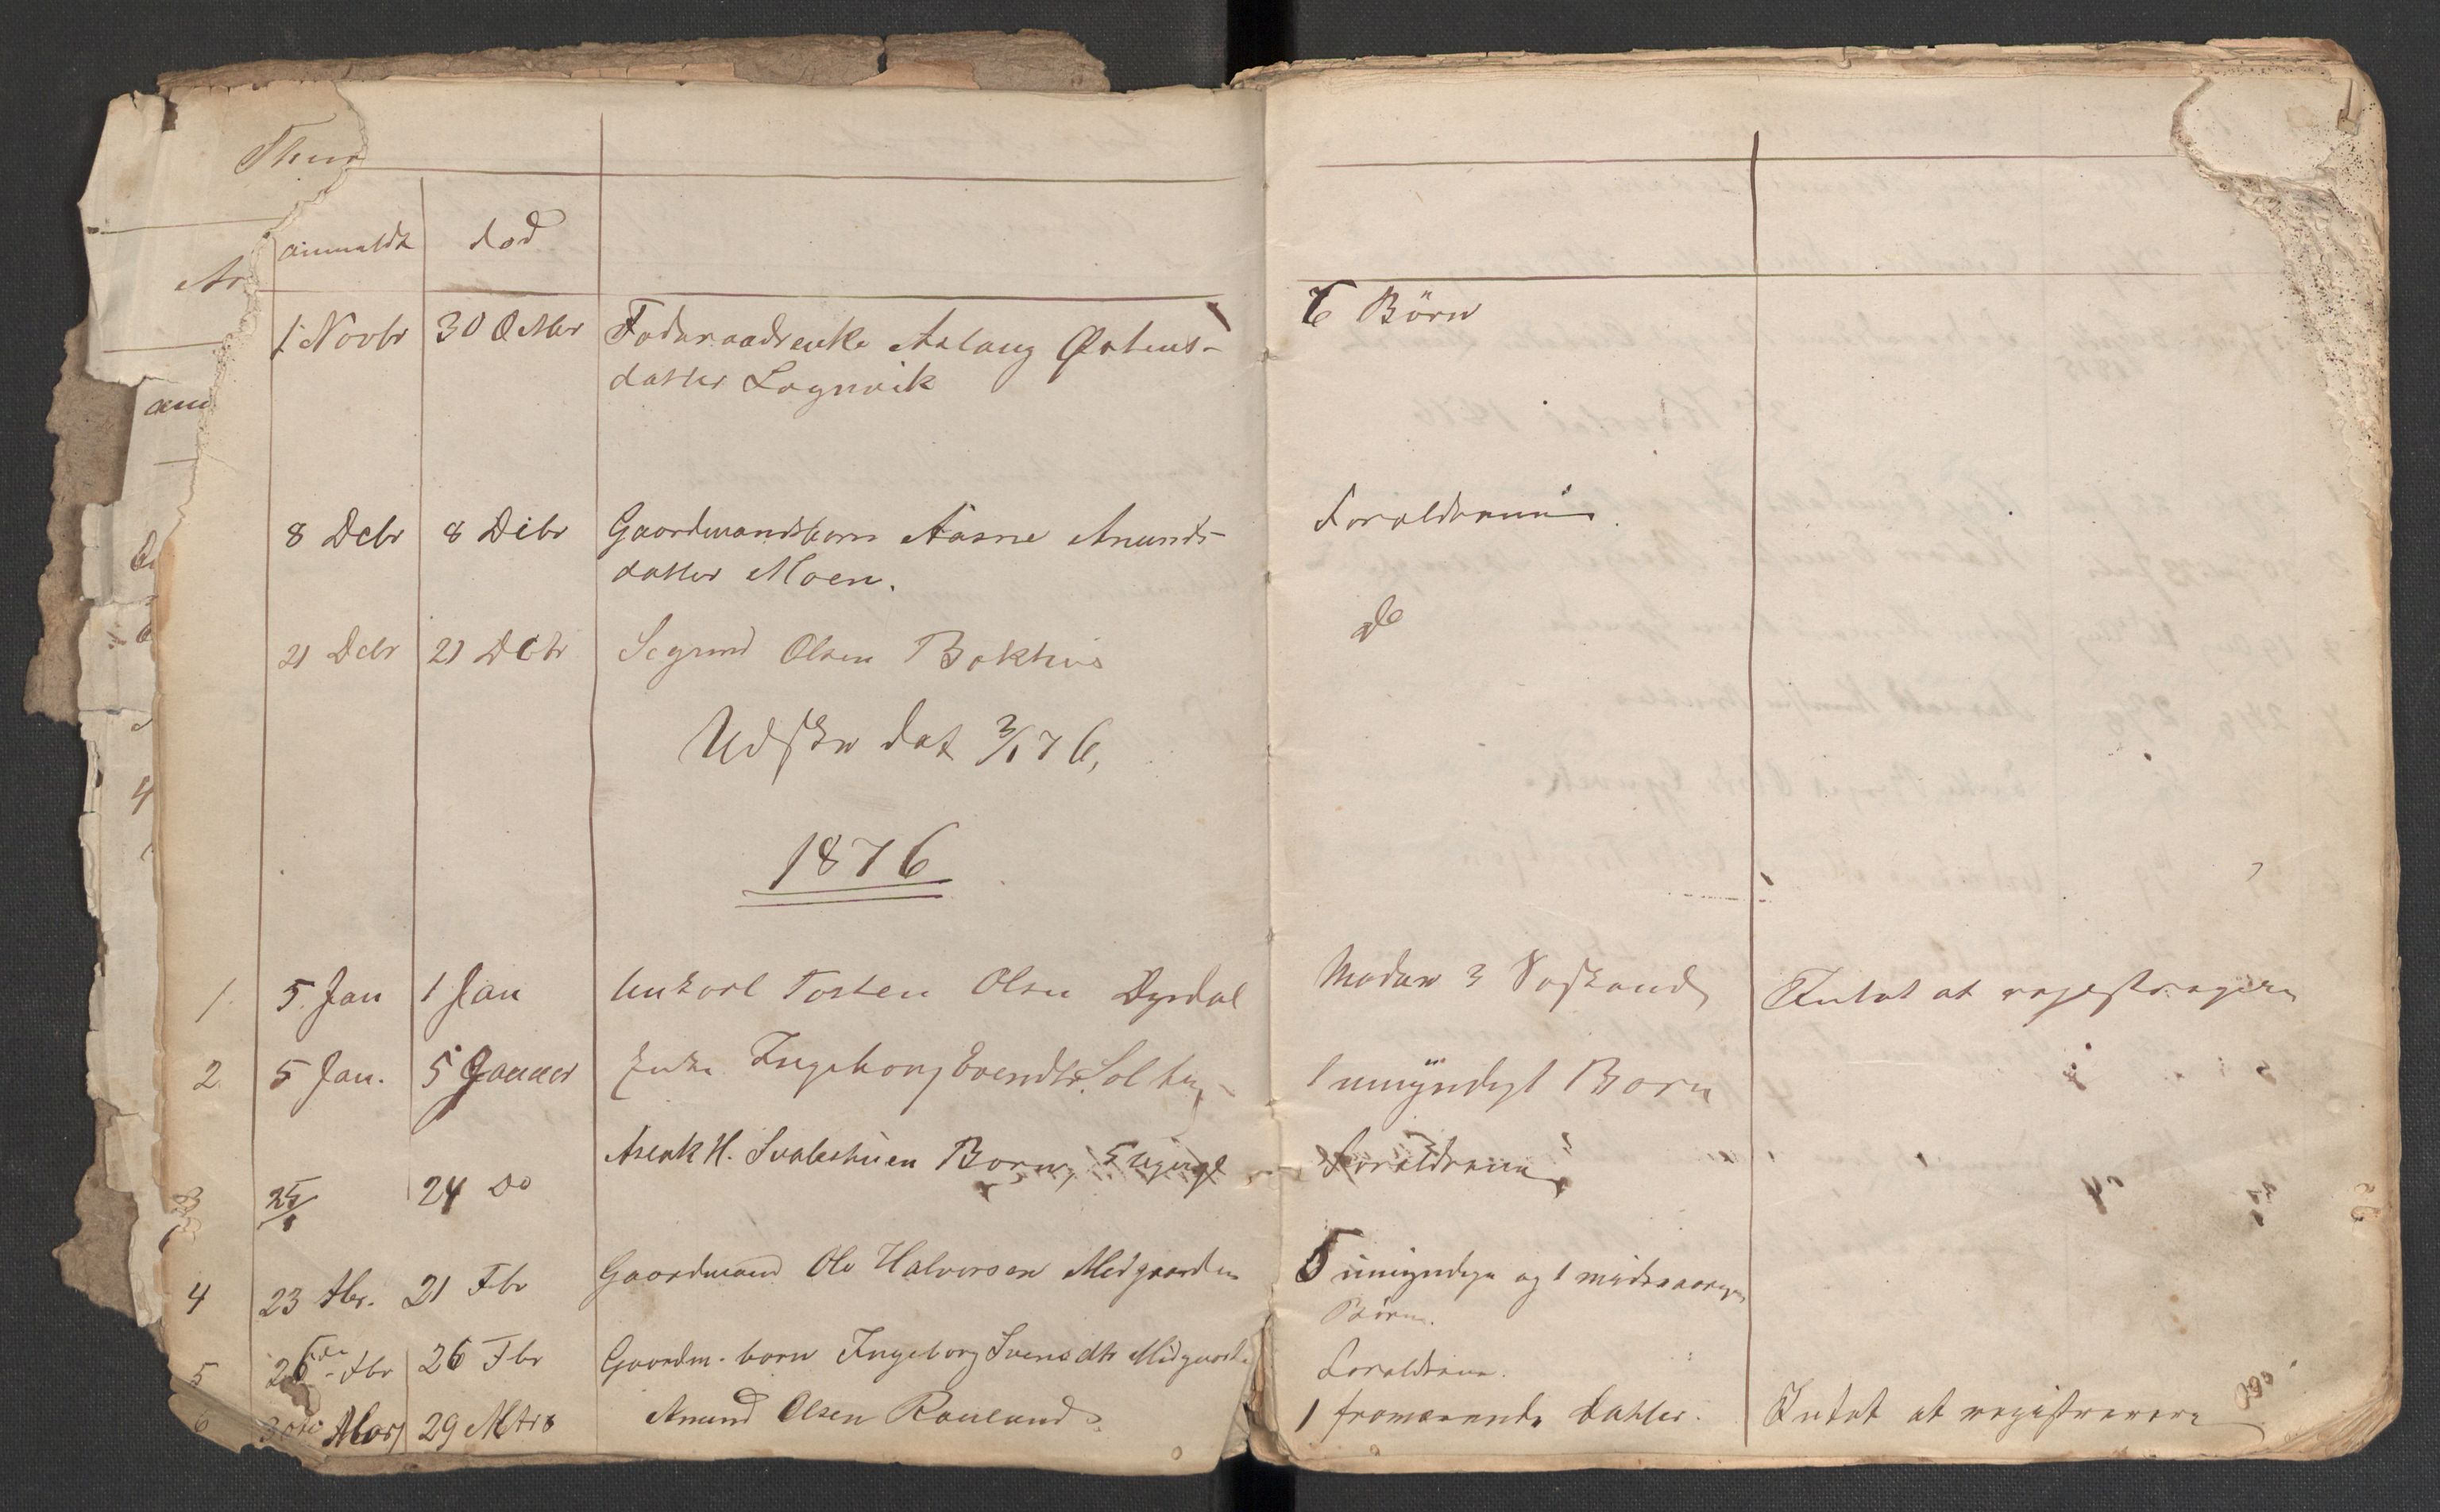 anmeldt død
1 Novbr 30 Octbr Føderaadsenke Aslaug Østens- 6 Börn
datter Løgnvik
8 Debr 8 Debr Gaardmandsbarn Aasne Anunds- Forældrene
datter Moen.
21 Debr 21 Debr Segrund Olsen Bakhus Do
Udskr dat 3/1 76,
1876
1. 5. Jan 1 Jan Unkarl Tosten Olsen Dyrdal Moder 3 Søskende Intet at regestregere
2 5 Jan. 5 Januar Enke Ingeborg Evendtr. 1 umyndigt Born
3 25/1 24 Do Aslak H. Svaleshuen Born Forældrene
4 23 Fbr. 21 Fbr Gaardmand Ole Halvorsen Midgaarden 5 umyndige og 1
Börn.
5 26de Fbr 26 Fbr Gaardm. barn Ingeborg Svensdtr Midgaarden Forældrene.
6 30te Mars 29 Mars Anund Olsen Rauland 1 datter. Intet at registrerere